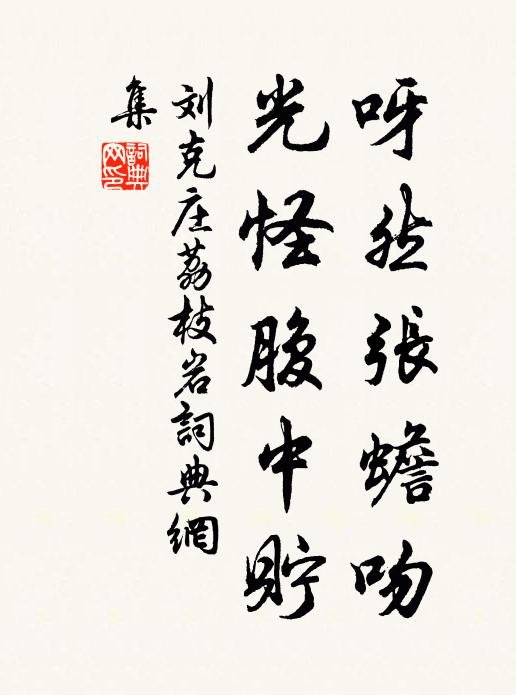 呀然張蟾吻
光怪腹中貯
刘克庄荔枝岩詞典網
集
詞典网印